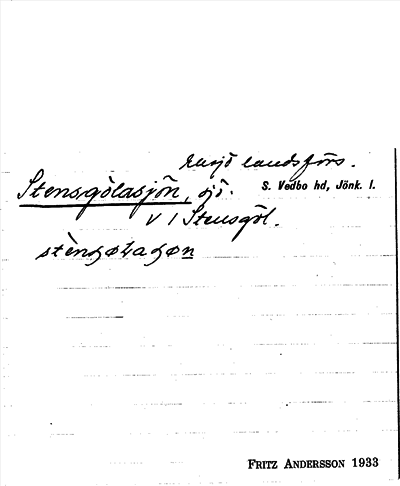 Eksjö landsförs.
Stensgölasjön, sjö. S. Vedbo hd, Jönk. l.
v 1 Stensgöl.
FRITZ ANDERSSON 1933